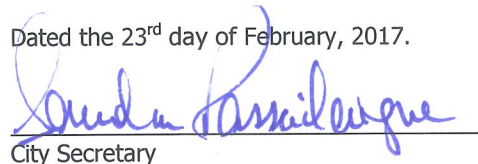 Dated the 23rd day of February, 2017.
City Secretary